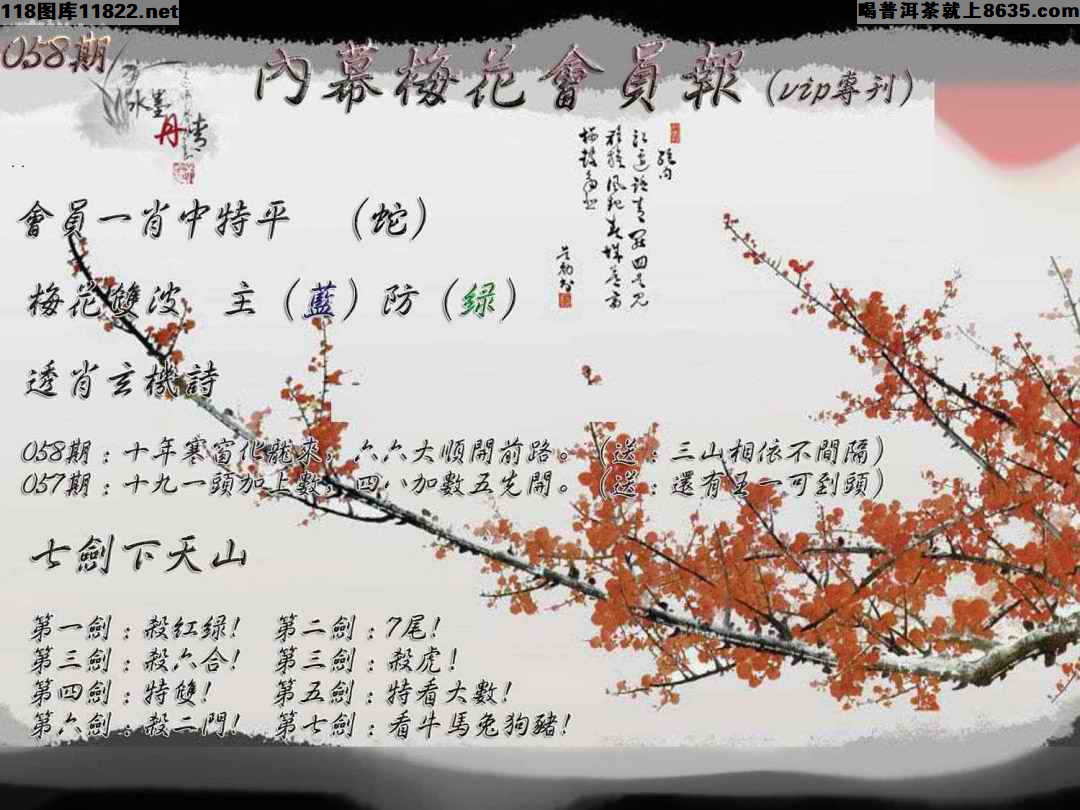 118图库11822.net
喝普洱茶就上8635.com
058期
內幕梅花會員報(vip專刊)
水墨
丹青
..
會員一肖中特平 (蛇)
梅花雙波 主(藍)防(绿)
透肖玄機詩
058期:十年寒窗化龍來,六六大順開前路。(送:三山相依不間隔)
057期:十九一頭加上數,四八加數五先開。(送:還有五一可到頭)
七劍下天山
第一劍:殺紅绿! 第二劍:7尾!
第三劍:殺六合! 第三劍:殺虎!
第四劍:特雙! 第五劍:特看大數!
第六劍:殺二門! 第七劍:看牛馬兔狗豬!